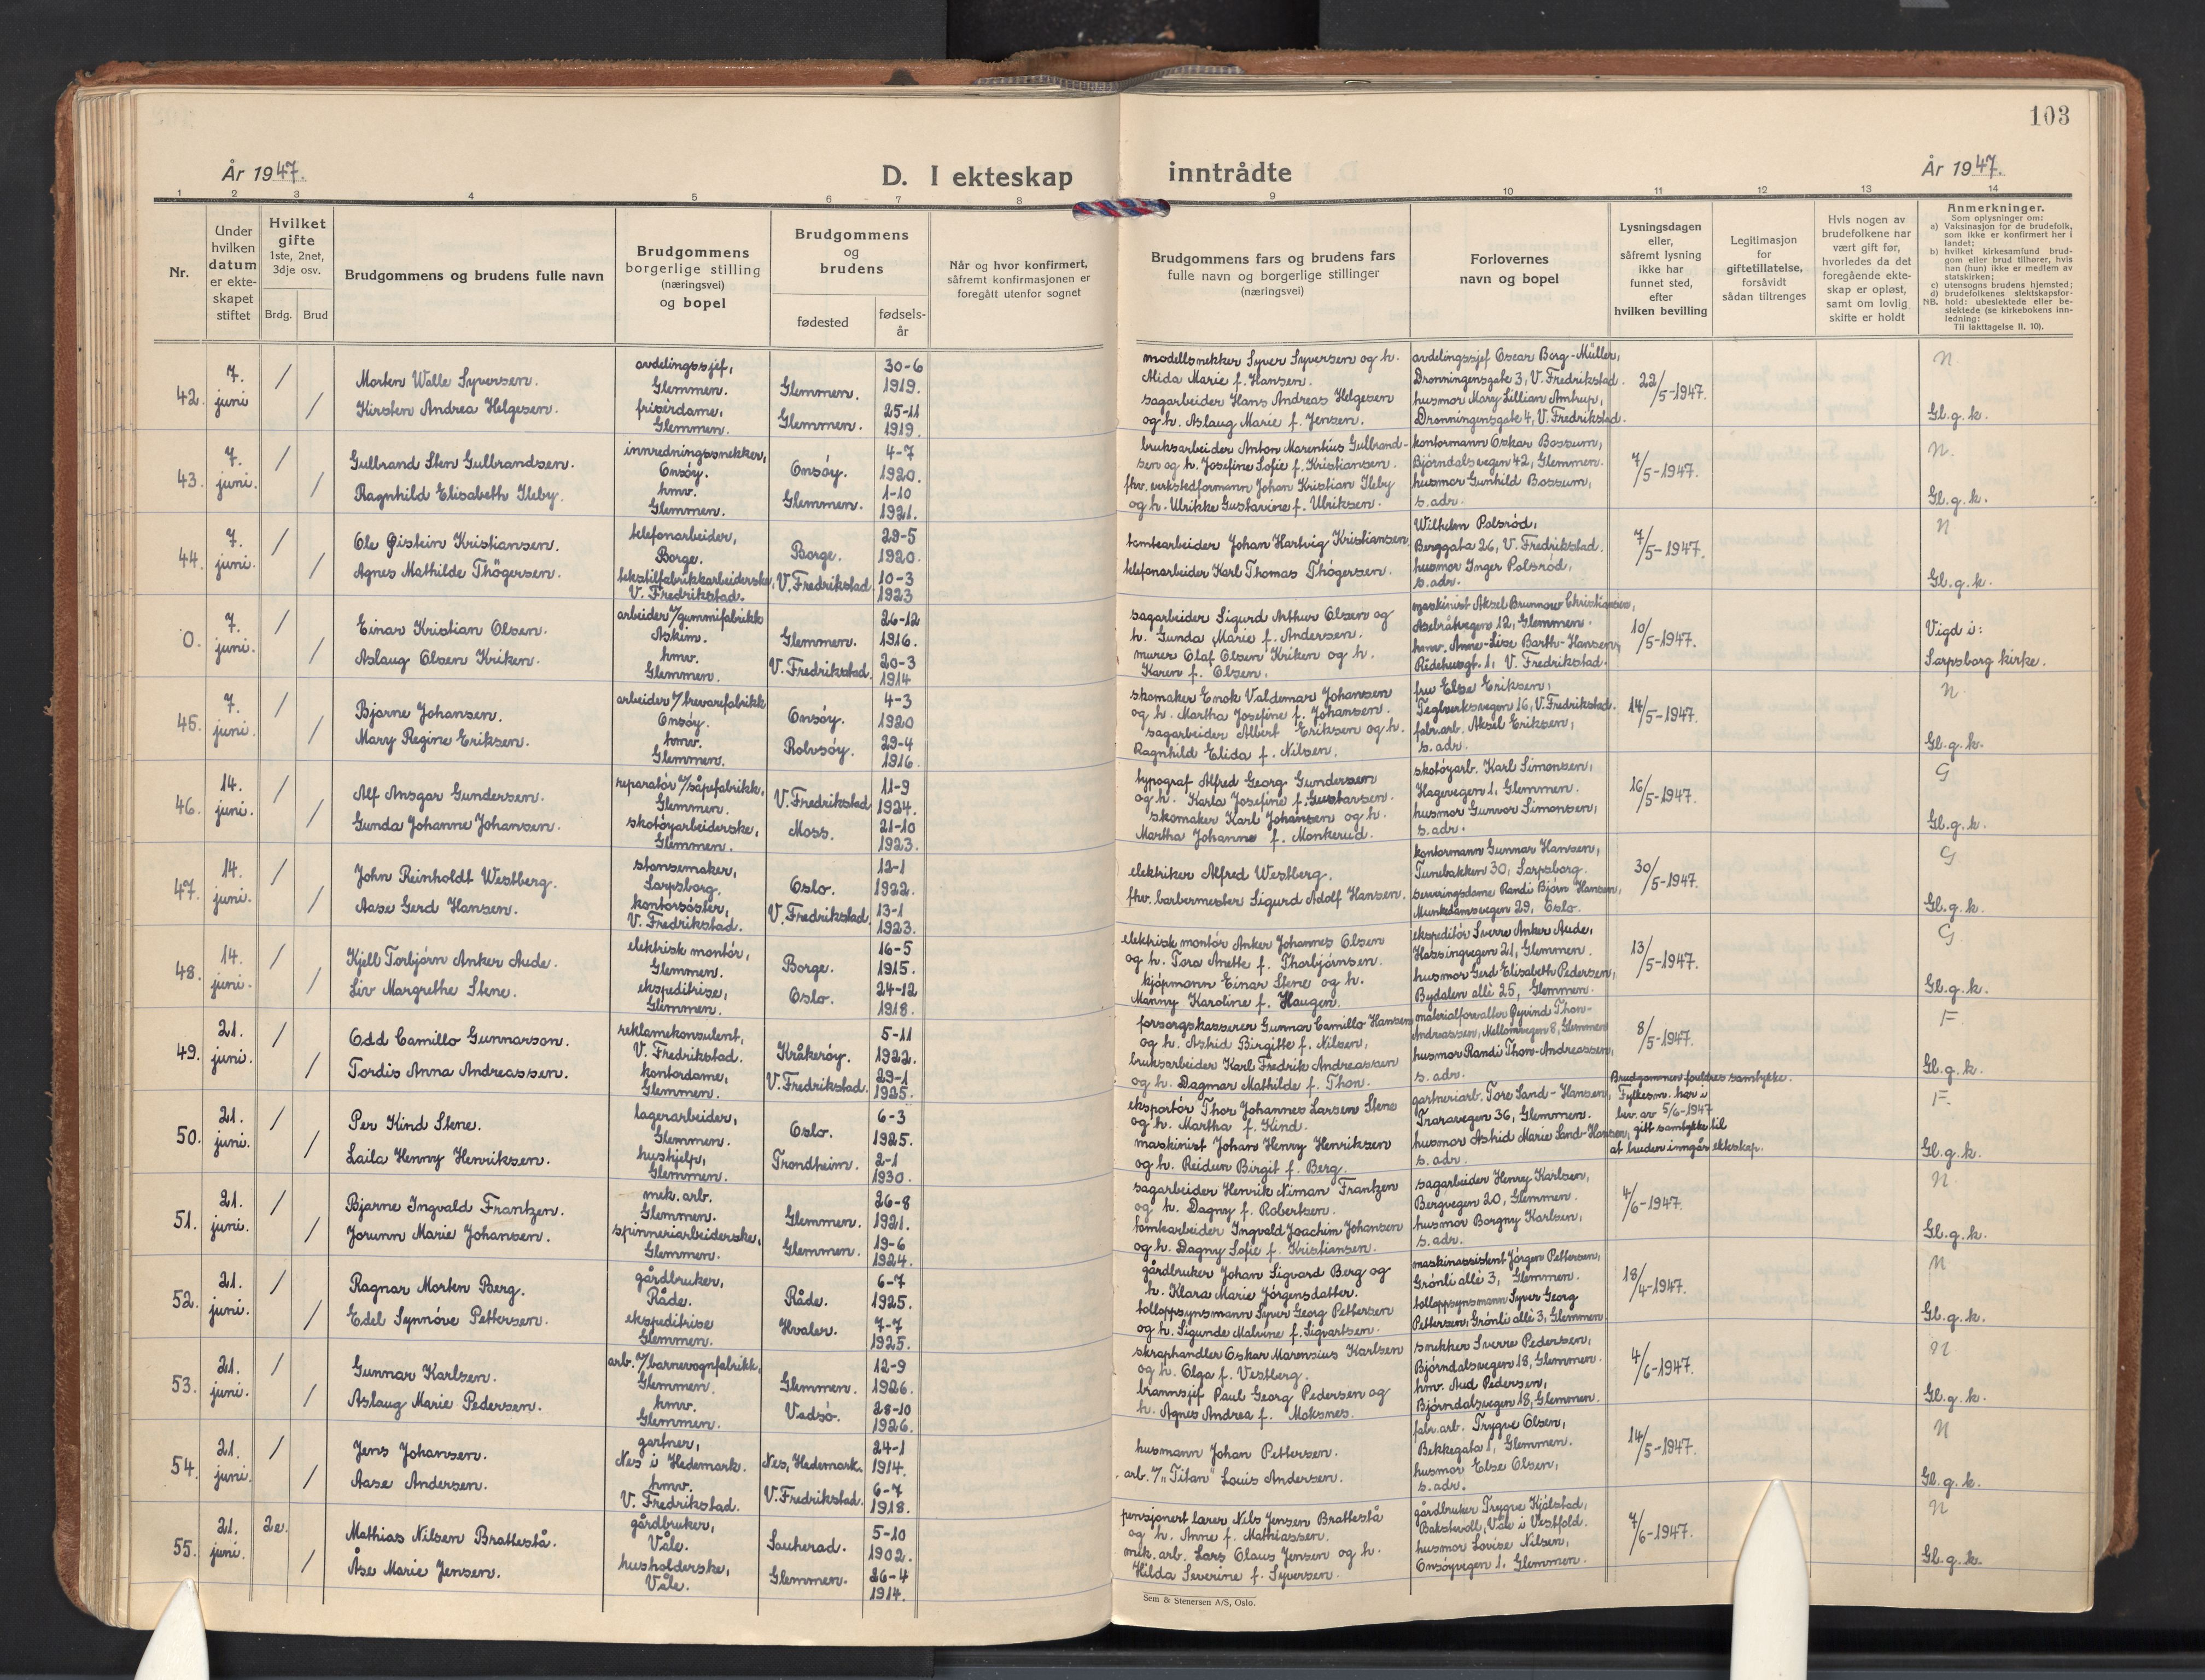 103
År 1947.
D. I ekteskap inntrådte
År 1947.
1 2 3 4 5 6 7 8 9 10 11 12 13 14
Nr.
Under hvilken datum er ekteskapet stiftet
Hvilket gifte
1ste, 2net, 3dje osv.
Brdg. Brud
Brudgommens og brudens fulle navn
Brudgommens
borgerlige stilling
(næringsvei)
og bopel
Brudgommens
og
brudens
fødested
fødsels-
år
Når og hvor konfirmert,
såfremt konfirmasjonen er
foregått utenfor sognet
Brudgommens fars og brudens fars
fulle navn og borgerlige stillinger
(næringsvei)
Forlovernes
navn og bopel
Lysningsdagen
eller,
såfremt lysning
ikke har
funnet sted,
efter
hvilken bevilling
Legitimasjon
for
giftetillatelse,
forsåvidt
sådan tiltrenges
Hvis nogen av
brudefolkene har
vært gift før,
hvorledes da det
foregående ekte-
skap er opløst,
samt om lovlig
skifte er holdt
Anmerkninger.
Som oplysninger om:
a) Vaksinasjon for de brudefolk,
som ikke er konfirmert her i
landet;
b) hvilket kirkesamfund brud-
gom eller brud tilhører, hvis
han (hun) ikke er medlem av
statskirken;
c) utensogns brudens hjemsted;
d) brudefolkenes slektskapsfor-
hold: ubeslektede eller be-
slektede (se kirkebokens inn-
ledning:
NB. Til iakttagelse II. 10).
42. 7. juni / /
Morten Walle Syversen.
Kirsten Andrea Helgesen.
avdelingssjef,
Glemmen.
frisérdame,
Glemmen.
Glemmen. 30-6 1919.
Glemmen. 25-11 1919.
modellsnekker Syver Syversen og h.
Alida Marie f. Hansen.
sagarbeider Hans Andreas Helgesen
og h. Aslaug Marie f. Jensen.
avdelingssjef Oscar Borg-Müller,
Dronningensgate 3, V. Fredrikstad.
husmor Mary Lillian Amtrup,
Dronningensgate 4, V. Fredrikstad.
22/5-1947.
N.
Gl.g.k.
43. 7. juni. / /
Gulbrand Sten Gulbrandsen.
Ragnhild Elisabeth Ileby.
innredningssnekker,
Onsøy.
hmv.
Glemmen.
Onsøy. 4-7 1920.
Glemmen. 1-10 1921.
bruksarbeider Anton Marentius Gulbrand-
sen og h. Josefine Sofie f. Kristiansen.
fhv. verkstedformann Johan Kristian Ileby
og h. Ulrikke Gustaviere f. Ulriksen.
kontormann Oskar Bossum,
Bjørndalsvegen 42, Glemmen.
husmor Gunhild Bossum,
s. adr.
7/5-1947.
N.
Gl.g.k.
44. 7. juni. / /
Ole Øistein Kristiansen.
Agnes Mathilde Thøgersen.
telefonarbeider,
Borge.
tekstilfabrikkarbeiderske,
V. Fredrikstad.
Borge. 29-5 1920.
V. Fredrikstad 10-3 1923
tomtearbeider Johan Hartvig Kristiansen
telefonarbeider Karl Thomas Thøgersen.
Wilhelm Polsrød,
Berggata 26, V. Fredrikstad.
husmor Inger Polsrød,
s. adr.
7/5-1947.
N
Gl.g.k.
0. 7. juni. / /
Einar Kristian Olsen.
Aslaug Olsen Kriken.
arbeider v/gummifabrikk
Askim.
hmv.
Glemmen.
Glemmen. 26-12 1916.
V. Fredrikstad. 20-3 1914
sagarbeider Sigurd Arthur Olsen og
h. Gunda Marie f. Andersen.
murer Olaf Olsen Kriken og h.
Karen f. Olsen.
maskinist Aksel Brunnow Christiansen,
Aselråkvegen 12, Glemmen.
hmv. Anne-Lise Barth-Hansen,
Ridehusgt. 1, V. Fredrikstad.
10/5-1947.
Vigd i:
Sarpsborg kirke.
45. 7. juni. / /
Bjarne Johansen.
Mary Regine Eriksen.
arbeider v/trevarefabrikk
Onsøy.
hmv.
Glemmen.
Onsøy. 4-3 1920
Rolvsøy. 29-4 1916.
skomaker Enok Valdemar Johansen
og h. Martha Josefine f. Johansen.
sagarbeider Albert Eriksen og h.
Ragnhild Elida f. Nilsen.
fru Else Eriksen,
Teglverksvegen 16, V. Fredrikstad.
fabr.arb. Aksel Eriksen,
s. adr.
14/5-1947.
N
Gl.g.k.
46. 14. juni. / /
Alf Ansgar Gundersen.
Gunda Johanne Johansen.
reparatør v/såpefabrikk,
Glemmen.
skotøyarbeiderske,
Glemmen.
V. Fredrikstad 11-9 1924.
Moss. 21-10 1923.
typograf Alfred Georg Gundersen
og h. Karla Josefine f. Gustavsen.
skomaker Karl Johansen og h.
Martha Johanne f. Monkerud.
skotøyarb. Karl Simonsen,
Hagevegen 1, Glemmen.
husmor Gunvor Simonsen,
s. adr.
16/5-1947.
G
Gl.g.k.
47. 14. juni. / /
John Reinholdt Westberg.
Aase Gerd Hansen.
stansemaker,
Sarpsborg.
kontorsøster,
V. Fredrikstad.
Oslo. 12-1 1922.
V. Fredrikstad 13-1 1923.
elektriker Alfred Westberg.
fhv. barbermester Sigurd Adolf Hansen.
kontormann Gunnar Hansen,
Tunebakken 30, Sarpsborg.
serveringsdame Randi Bjørn Hansen,
Munkedamsvegen 29, Oslo.
30/5-1947.
G
Gl.g.k.
48. 14. juni. / /
Kjell Torbjørn Anker Aude.
Liv Margrethe Stene.
elektrisk montør,
Glemmen.
ekspeditrise,
Glemmen.
Borge. 16-5 1915.
Oslo. 24-12 1918.
elektrisk montør Anker Johannes Olsen
og h. Tora Anette f. Thorbjørnsen.
kjøpmann Einar Stene og h.
Manny Karoline f. Haugen.
ekspeditør Sverre Anker Aude,
Hassingvegen 21, Glemmen.
husmor Gerd Elisabeth Pedersen,
Bydalen allè 25, Glemmen.
13/5-1947.
G
Gl.g.k.
49. 21. juni. / /
Odd Camillo Gunnarson.
Tordis Anna Andreassen.
reklamekonsulent,
V. Fredrikstad.
kontordame,
Glemmen.
Kråkerøy. 5-11 1922.
V. Fredrikstad. 29-1 1925.
forsorgskasserer Gunnar Camillo Hansen
og h. Astrid Birgitte f. Nilsen,
bruksarbeider Karl Fredrik Andreassen
og h. Dagmar Mathilde f. Thon.
materialforvalter Øyvind Thon-
Andreassen, Mellomvegen 8, Glemmen
husmor Randi Thon-Andreassen,
s. adr.
8/5-1947.
F
Gl.g.k.
50. 21. juni. / /
Per Kind Stene.
Laila Henny Henriksen.
lagerarbeider,
Glemmen.
hushjelp,
Glemmen.
Oslo. 6-3 1925.
Trondheim. 2-1 1930.
eksportør Thor Johannes Larsen Stene
og h. Martha f. Kind.
maskinist Johan Henry Henriksen
og h. Reidun Birgit f. Berg.
gartneriarb. Tore Sand-Hansen,
Traravegen 36, Glemmen.
husmor Astrid Marie Sand-Hansen,
s. adr.
Brudgommen foreldres samtykke.
Fylkesm. har i
brev. av 5/6-1947
gitt samtykke til
at bruden inngår ekteskap.
F.
Gl.g.k.
51. 21. juni. / /
Bjarne Ingvald Frantzen.
Jorunn Marie Johansen.
mek. arb.
Glemmen.
spinneriarbeiderske,
Glemmen.
Glemmen. 26-8 1921.
Glemmen. 19-6 1924.
sagarbeider Henrik Niman Frantzen
og h. Dagny f. Robertsen.
tomtearbeider Ingvald Joachim Johansen
og h. Dagny Sofie f. Kristiansen.
sagarbeider Henry Karlsen,
Bergvegen 20, Glemmen.
husmor Borgny Karlsen,
s. adr.
4/6-1947.
N.
Gl.g.k.
52. 21. juni. / /
Ragnar Morten Berg.
Edel Synnøve Pettersen.
gårdbruker,
Råde.
ekspeditrise
Glemmen.
Råde. 6-7 1925.
Hvaler. 7-7 1925.
gårdbruker Johan Sigvard Berg og
h. Klara Marie Jørgensdatter.
tolloppsynsmann Syver Georg Pettersen
og h. Sigunde Malvine f. Sigvartsen.
maskinassistent Jørgen Pettersen,
Grønli allè 3, Glemmen.
tolloppsynsmann Syver Georg
Pettersen, Grønli allè 3, Glemmen.
18/4-1947.
N
Gl.g.k.
53. 21. juni. / /
Gunnar Karlsen.
Aslaug Marie Pedersen.
arb. v/barnevognfabrikk,
Glemmen.
hmv.
Glemmen.
Glemmen. 12-9 1926.
Vadsø. 28-10 1926.
skraphandler Oskar Marensius Karlsen
og h. Olga f. Vestberg.
brannsjef Paul Georg Pedersen og
h. Agnes Andrea f. Moksnes.
snekker Sverre Pedersen,
Bjørndalsvegen 18, Glemmen.
hmv. Aud Pedersen,
Bjørndalsvegen 18, Glemmen.
4/6-1947.
N
Gl.g.k.
54. 21. juni. / /
Jens Johansen.
Aase Andersen.
gartner,
Nes i Hedemark.
hmv.
V. Fredrikstad.
Nes, Hedemark. 24-1 1914.
V. Fredrikstad. 6-7 1918.
husmann Johan Pettersen.
arb. v/"Titan" Louis Andersen.
fabr.arb. Trygve Olsen,
Bekkegata 1, Glemmen.
husmor Else Olsen,
s. adr.
14/5-1947.
N
Gl.g.k.
55. 21. juni. 2e. /
Mathias Nilsen Brattestå.
Åse Marie Jensen.
gårdbruker,
Våle.
husholderske,
Våle.
Sauherad. 5-10 1902.
Glemmen. 26-4 1914.
pensjonert lærer Nils Jensen Brattestå
og h. Anne f. Mathiassen.
mek. arb. Lars Claus Jensen og h.
Hilda Severine f. Syversen.
gårdbruker Trygve Kjølstad,
Bakstvoll, Våle i Vestfold.
husmor Lovise Nilsen,
Onsøyvegen 1, Glemmen.
7/6-1947.
N
Gl.g.k.
Sem & Stenersen A/S, Oslo.